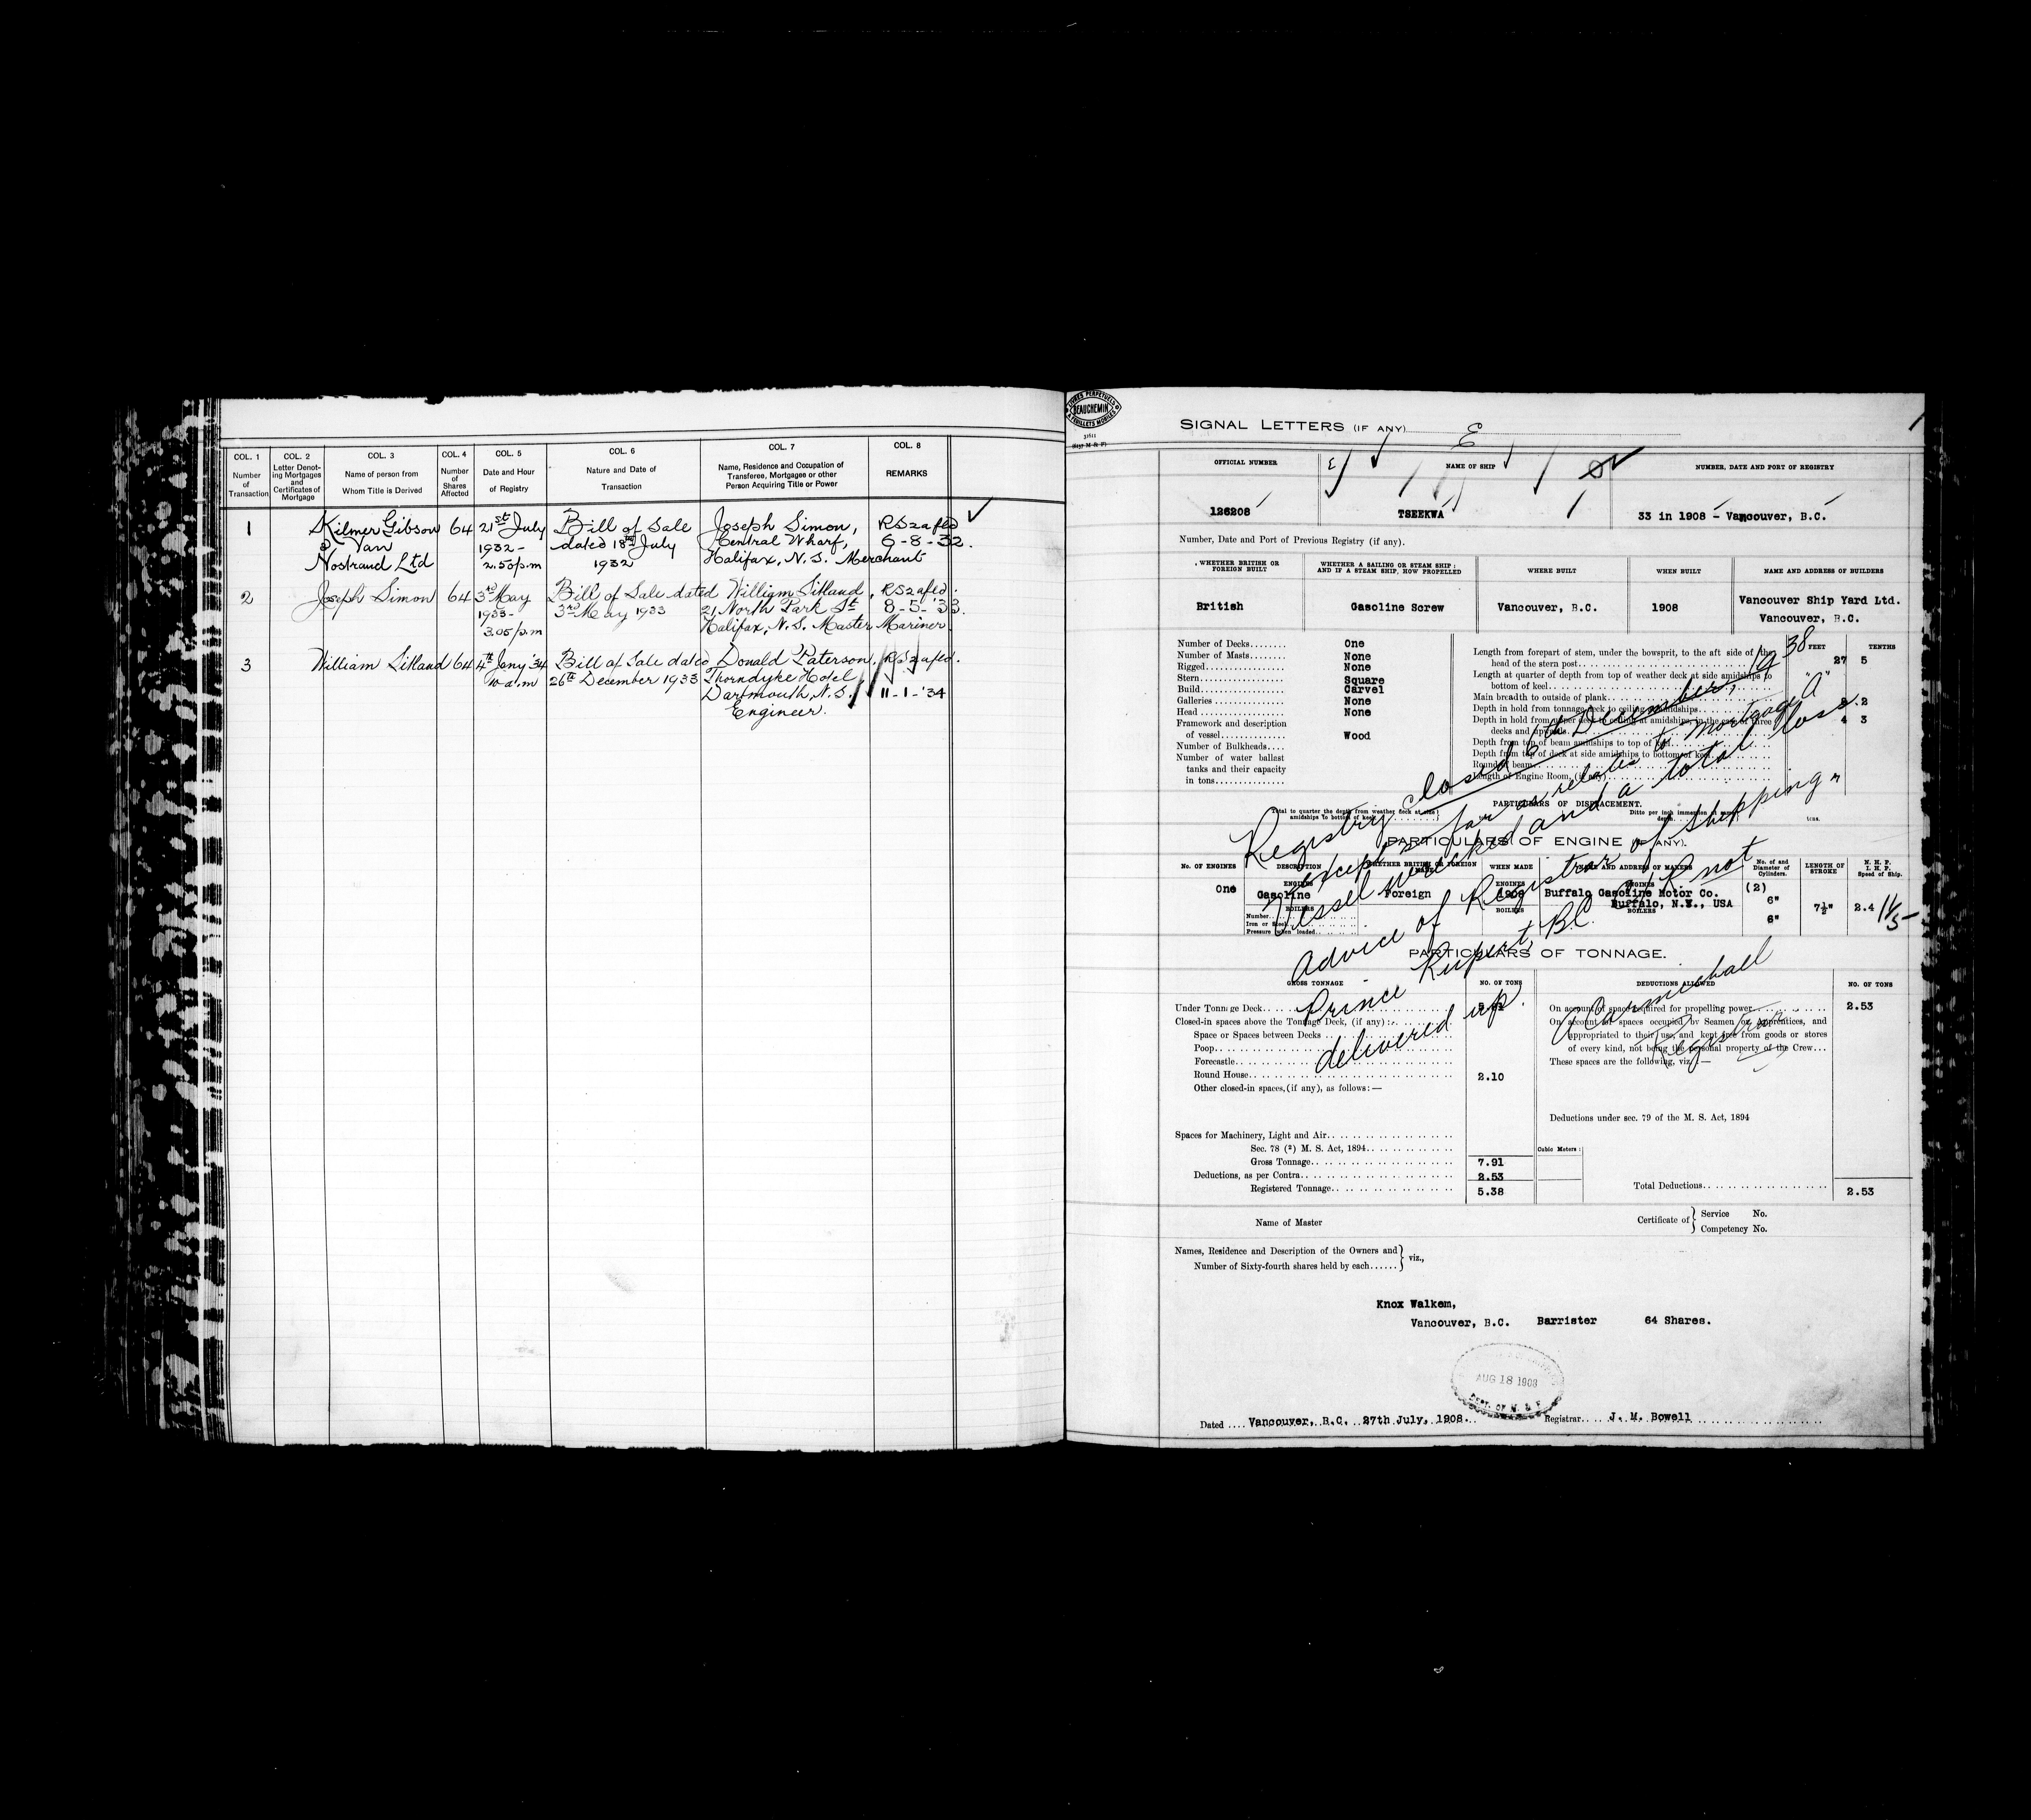 COL. 1
Number
of
Transaction
COL. 2
Letter Denot-
ing Mortgages
and
Certificates of
Mortgage
COL. 3
Name of person from
Whom Title is Derived
COL. 4
Number
of
Shares
Affected
COL. 5
Date and Hour
of Registry
COL. 6
Nature and Date of
Transaction
COL. 7
Name, Residence and Occupation of
Transferee, Mortgage or other
Person Acquiring Title or Power
COL. 8
REMARKS
1 Kilmer Gibson 64 21st July Bill of Sale Joseph Simon,
& Van 1932- dated 18th July Central Wharf, 6-8-32.
Nostrand Ltd 2.50 p.m 1932 Halifax, N.S. Merchant
2 Joseph Simon 64 3rd May Bill of Sale dated William
1933- 3rd May 1933 21 North Park St 8-5-33.
3.05 p.m Halifax, N.S. Master Mariner
3 William 64 4th Jany '34 Bill of Sale dated Donald Paterson,
10 a.m 26th December 1933 Thorndyke Hotel
Dartmouth, N.S. 11-1-'34
Engineer.
LIVRES PERPETUELS
BEAUCHEMIN
A FEUILLETS MOBILES
SIGNAL LETTERS (IF ANY)
OFFICIAL NUMBER
NAME OF SHIP
NUMBER, DATE AND PORT OF REGISTRY
126208
TSEEKWA
33 in 1908 - Vancouver, B.C.
Number, Date and Port of Previous Registry (if any).
WHETHER BRITISH OR
FOREIGN BUILT
WHETHER A SAILING OR STEAM SHIP;
AND IF A STEAM SHIP, HOW PROPELLED
WHERE BUILT
WHEN BUILT
NAME AND ADDRESS OF BUILDERS
British
Gasoline Screw
Vancouver, B.C.
1908
Vancouver Ship Yard Ltd.
Vancouver, B.C.
Number of Decks........ One
Number of Masts........ None
Rigged................ None
Stern................. Square
Build................. Carvel
Galleries............. None
Head.................. None
Framework and description
of vessel............. Wood
Number of Bulkheads....
Number of water ballast
tanks and their capacity
in tons...............
FEET TENTHS
Length from forepart of stem, under the bowsprit, to the aft side of the
head of the stern post 27 5
Length at quarter of depth from top of weather deck at side amidships to
bottom of keel
Main breadth to outside of plank 2
Depth in hold from tonnage deck to ceiling amidships 4 3
Depth in hold from upper deck to ceiling at amidships, in the case of three
decks and upwards
Depth from top of beam amidships to top of keel
Depth from top of deck at side amidships to bottom of keel
Round of beam
Length of Engine Room, (if any)
PARTICULARS OF DISPLACEMENT.
Registry closed 6th December, 1938
except so far as relates to mortgage "A"
Vessel wrecked and a total loss.
Advice of Registrar of Shipping
Prince Rupert, B.C. not
delivered up.
Registrar
PARTICULARS OF ENGINE (IF ANY).
No. OF ENGINES
DESCRIPTION
WHETHER BRITISH OR FOREIGN
MADE
WHEN MADE
NAME AND ADDRESS OF MAKERS
No. of and
Diameter of
Cylinders.
LENGTH OF
STROKE
N. H. P.
I. H. P.
Speed of Ship.
ENGINES
One Gasoline Foreign 1908 Buffalo Gasoline Motor Co. (2)
Buffalo, N.Y., USA 6" 7½" 2.4
6"
BOILERS
Number
Iron or Steel
Pressure when loaded
PARTICULARS OF TONNAGE.
GROSS TONNAGE
NO. OF TONS
DEDUCTIONS ALLOWED
NO. OF TONS
Under Tonnage Deck
Closed-in spaces above the Tonnage Deck, (if any):
Space or Spaces between Decks
Poop
Forecastle
Round House 2.10
Other closed-in spaces, (if any), as follows:—
Spaces for Machinery, Light and Air
Sec. 78 (2) M. S. Act, 1894
Gross Tonnage 7.91
Deductions, as per Contra 2.53
Registered Tonnage 5.38
On account of space required for propelling power 2.53
On account of spaces occupied by Seamen or Apprentices, and
appropriated to their use, and kept free from goods or stores
of every kind, not being the personal property of the Crew...
These spaces are the following, viz.:—
Deductions under sec. 79 of the M. S. Act, 1894
Cubic Meters:
Total Deductions 2.53
Name of Master
Certificate of { Service No.
Competency No.
Names, Residence and Description of the Owners and
Number of Sixty-fourth shares held by each...... } viz.,
Knox Walkem,
Vancouver, B.C. Barrister 64 Shares.
AUG 18 1908
Dated .... Vancouver, B.C. 27th July, 1908. Registrar.... J. M. Bowell